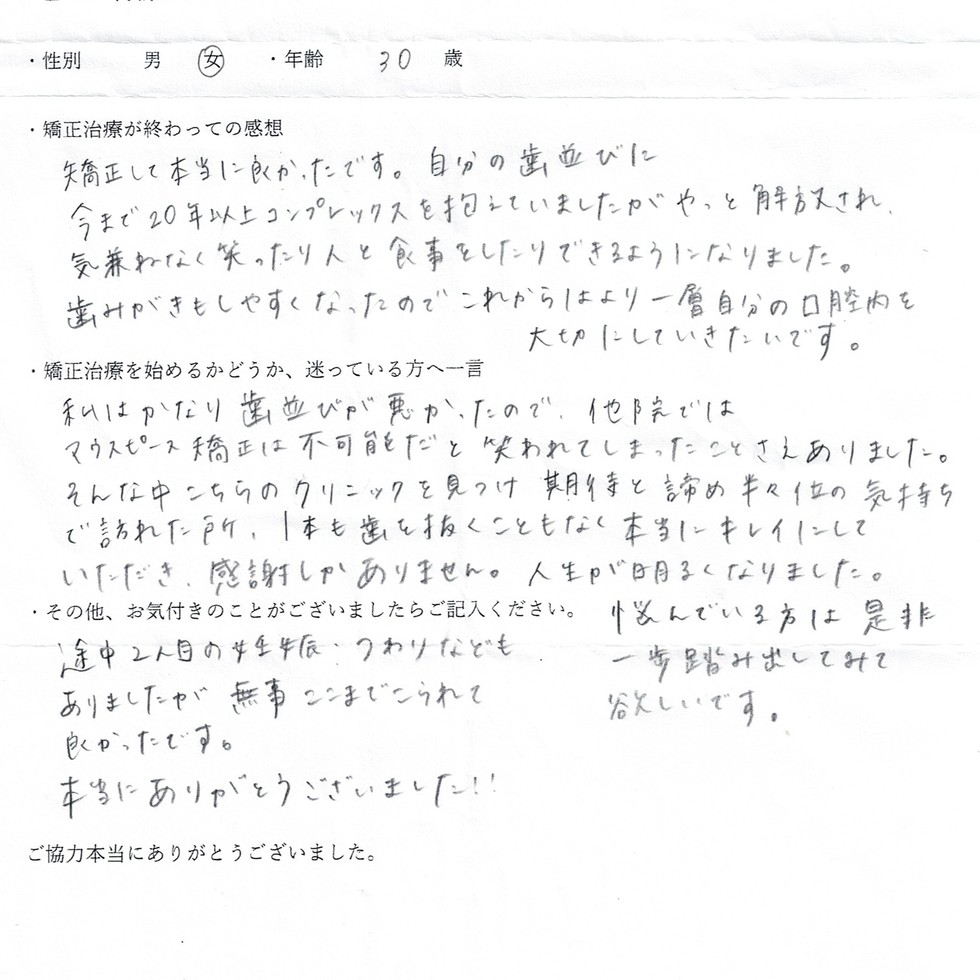 ・性別　男　女　・年齢　30　歳
・矯正治療が終わっての感想
矯正して本当に良かったです。自分の歯並びに
今まで20年以上コンプレックスを抱えていましたがやっと解放され、
気兼ねなく笑ったり人と食事をしたりできるようになりました。
歯みがきもしやすくなったのでこれからはより一層自分の口腔内を
大切にしていきたいです。
・矯正治療を始めるかどうか、迷っている方へ一言
私はかなり歯並びが悪かったので、他院では
マウスピース矯正は不可能だと笑われてしまったことさえありました。
そんな中こちらのクリニックを見つけ期待と諦め半々位の気持ち
で訪れた所、1本も歯を抜くこともなく本当にキレイにして
いただき、感謝しかありません。人生が明るくなりました。
悩んでいる方は是非
一歩踏み出してみて
欲しいです。
・その他、お気付きのことがございましたらご記入ください。
途中2人目の妊娠・つわりなども
ありましたが無事ここまでこられて
良かったです。
本当にありがとうございました!!
ご協力本当にありがとうございました。